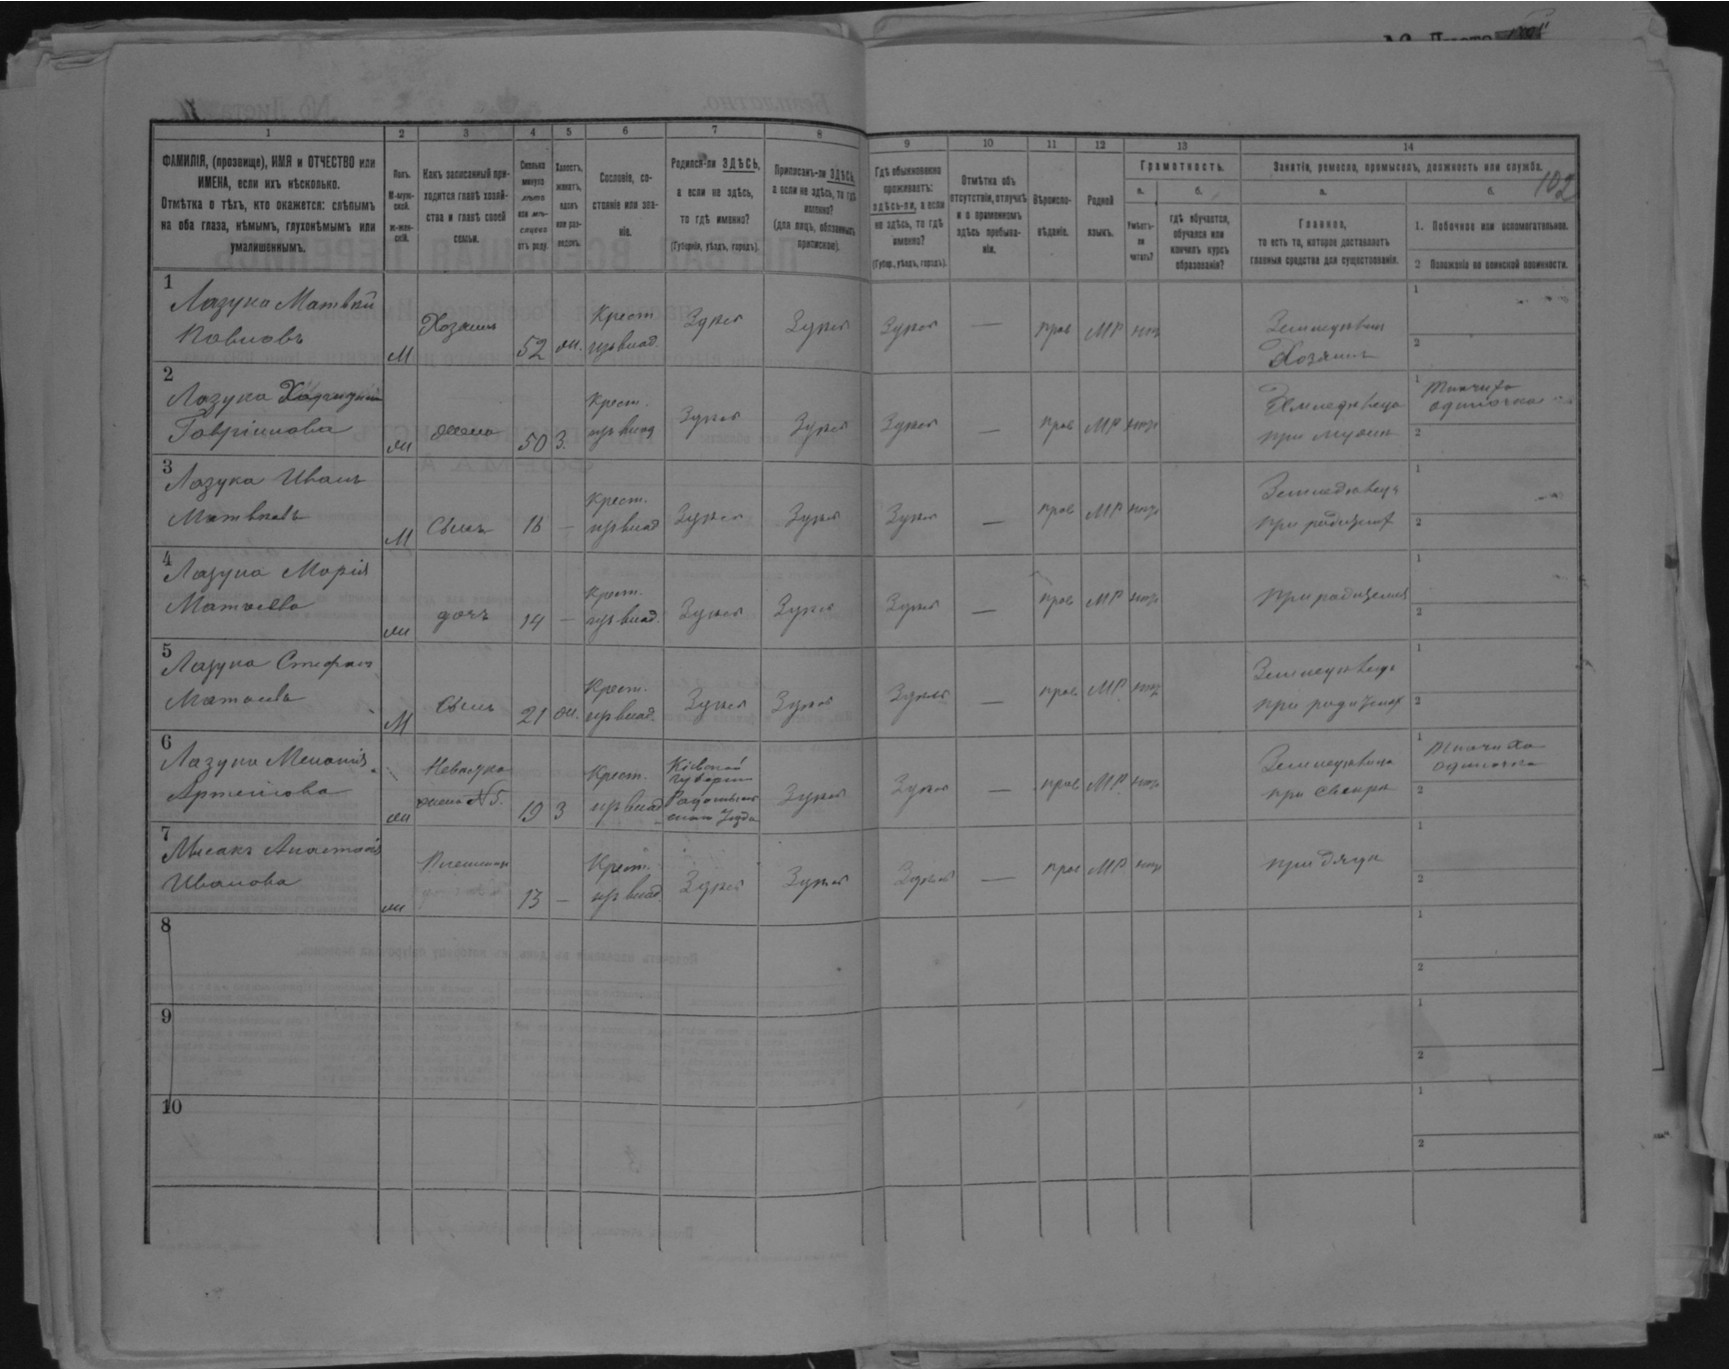 № Листа
1 2 3 4 5 6 7 8 9 10 11 12 13 14
ФАМИЛІЯ, (прозвище), ИМЯ и ОТЧЕСТВО или
ИМЕНА, если ихъ нѣсколько.
Отмѣтка о тѣхъ, кто окажется: слѣпымъ
на оба глаза, нѣмымъ, глухонѣмымъ или
умалишеннымъ.
Полъ.
М-муж-
ской.
ж-жен-
скій.
Какъ записанный при-
ходится главѣ хозяй-
ства и главѣ своей
семьи.
Сколько
минуло
лѣтъ
или мѣ-
сяцевъ
отъ роду.
Холостъ,
женатъ,
вдовъ
или раз-
веденъ.
Сословіе, со-
стояніе или зва-
ніе.
Родился-ли ЗДѢСЬ,
а если не здѣсь,
то гдѣ именно?
(Губернія, уѣздъ, городъ).
Приписанъ-ли ЗДѢСЬ,
а если не здѣсь, то гдѣ
именно?
(для лицъ, обязанныхъ
припискою).
Гдѣ обыкновенно
проживаетъ:
здѣсь-ли, а если
не здѣсь, то гдѣ
именно?
(Губер., уѣздъ, городъ).
Отмѣтка объ
отсутствіи, отлучкѣ
и о временномъ
здѣсь пребыва-
ніи.
Вѣроиспо-
вѣданіе.
Родной
языкъ.
Грамотность.
а. б.
Умѣетъ-
ли
читать?
гдѣ обучается,
обучался или
кончилъ курсъ
образованія?
Занятіе, ремесло, промыселъ, должность или служба.
102
а. б.
Главное,
то есть то, которое доставляетъ
главныя средства для существованія.
1. Побочное или вспомогательное.
2 Положеніе по воинской повинности.
1
Лазука Матвѣй
Павловъ
М Хозяинъ 52 ж. Крест. изъ влад. Здѣсь Здѣсь Здѣсь — прав МР нѣтъ Земледѣлецъ
Хозяинъ
1
2
2
Лазука
Гаврiилова
ж жена 50 З. Крест. изъ влад Здѣсь Здѣсь Здѣсь — прав МР нѣтъ
при мужѣ
1 Ткачиха
одиночка
2
3
Лазука Иванъ
Матвѣевъ
М Сынъ — Крест. изъ влад Здѣсь Здѣсь Здѣсь — прав МР нѣтъ Земледѣлецъ
при
1
2
4
Лазука Марія
Матвѣева
ж дочь 14 — Крест. изъ влад. Здѣсь Здѣсь Здѣсь — прав МР нѣтъ
при
1
2
5
Лазука Стефанъ
Матвѣевъ
М Сынъ 21 ж. Крест. изъ влад. Здѣсь Здѣсь Здѣсь — прав МР нѣтъ Земледѣлецъ
при
1
2
6
Лазука Меланія
Артемова
ж Невѣстка
жена № 5. 19 З Крест. изъ влад Кіевской
губерніи
Радомысль-
скаго Уѣзда Здѣсь Здѣсь — прав МР нѣтъ
при свекрѣ
1 Ткачиха
одиночка
2
7
Мисакъ Анастасія
Иванова
ж 13 — Крест. изъ влад. Здѣсь Здѣсь Здѣсь — прав МР нѣтъ при дядѣ
1
2
8
1
2
9
1
2
10
1
2